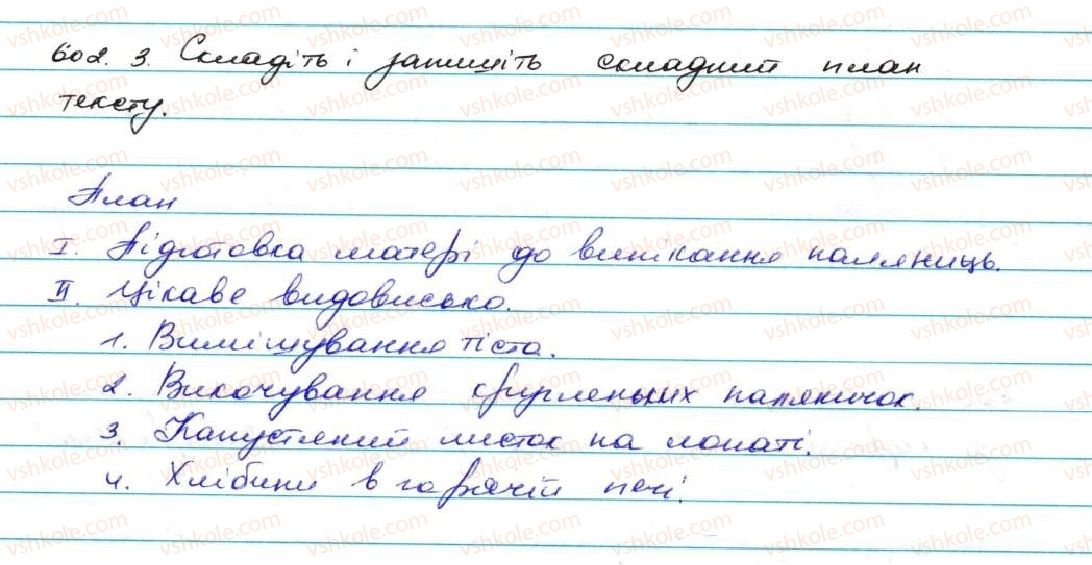 602. 3. Складіть і запишіть складний план
тексту.
План
I. Підготовка матері до випікання паляниць.
II. Цікаве видовисько.
1. Вимішування тіста.
2. Викочування кругленьких паляничок.
3. Капустяний листок на лопаті.
4. Хлібини в гарячій печі.